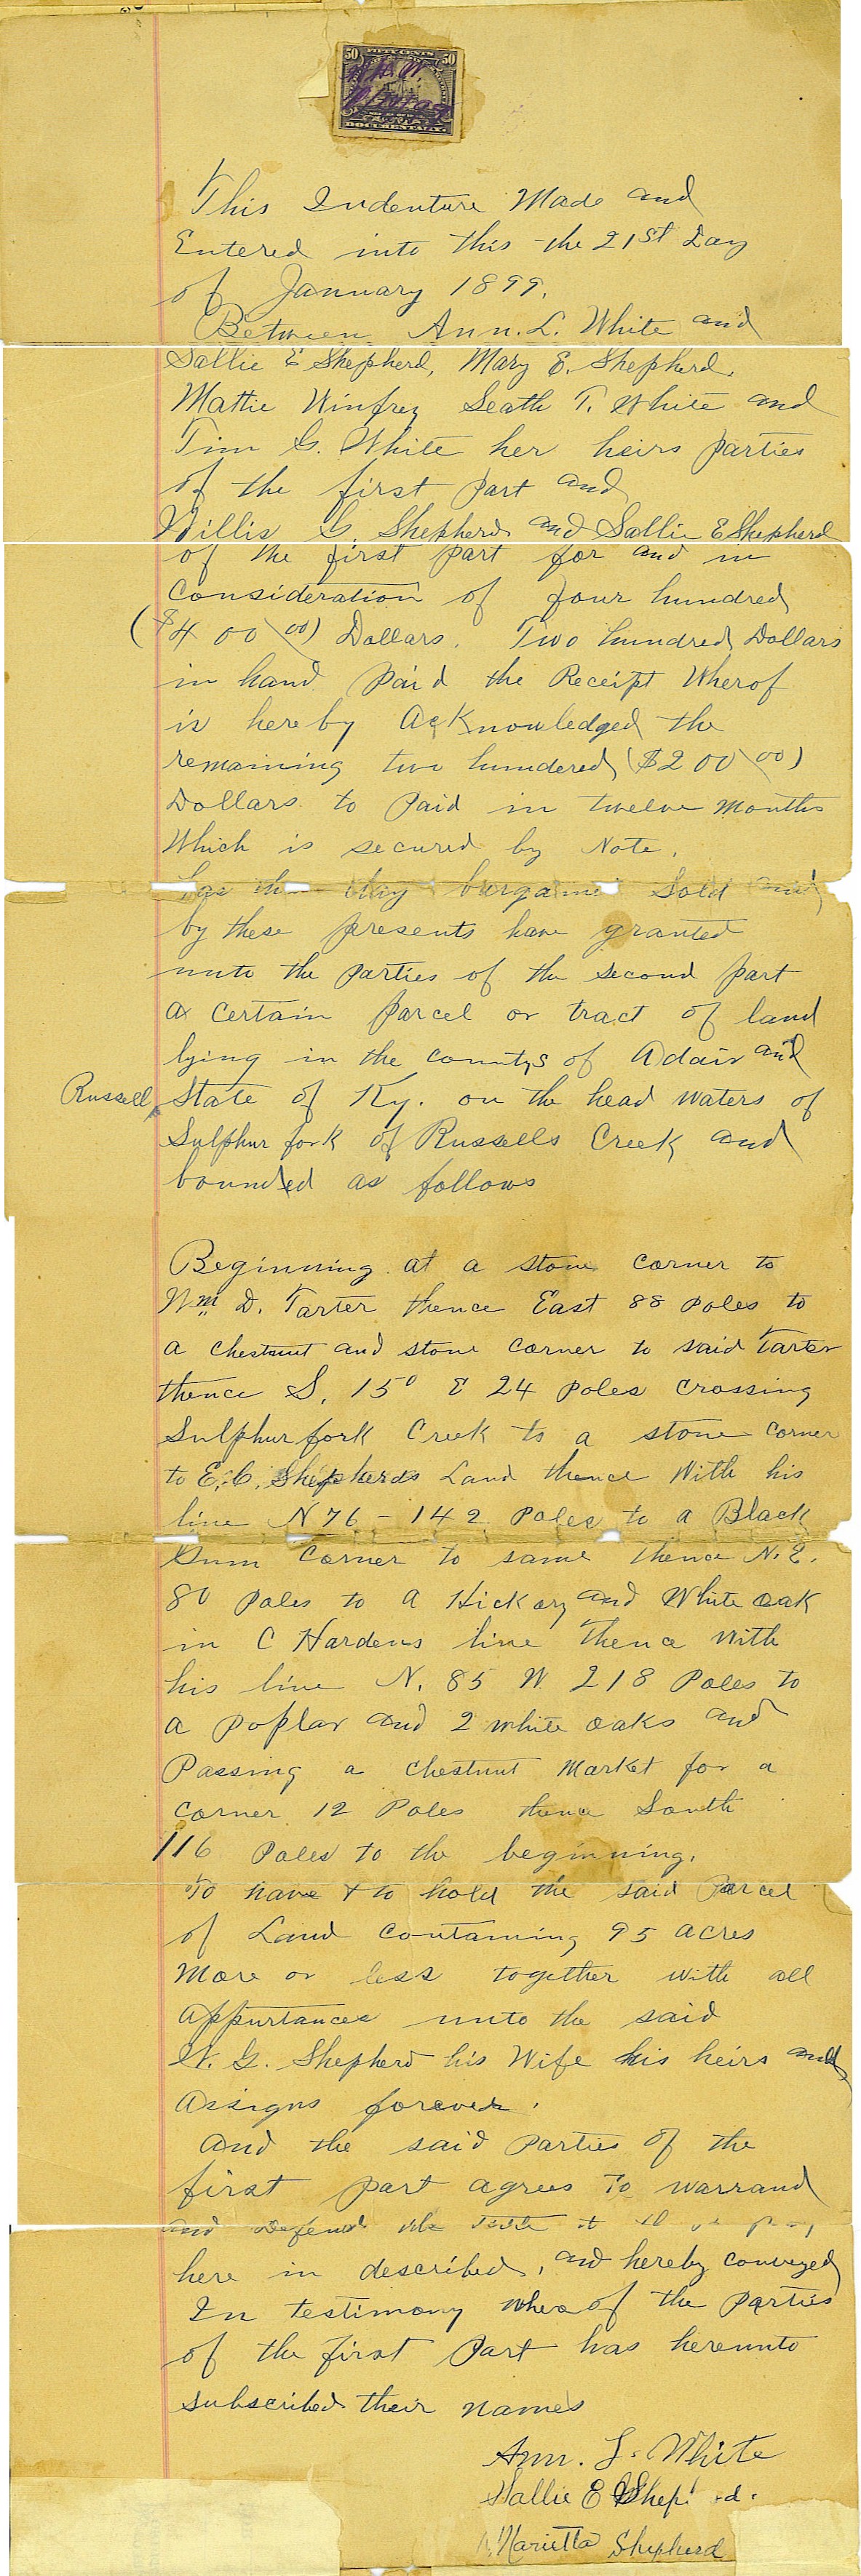 50 FIFTY CENTS 50
DOCUMENTARY
This Indenture Made and
Entered into this the 21st Day
of January 1899.
Between Ann. L. White and
Sallie E Shepherd, Mary E. Shepherd.
Mattie Winfrey Seath T. White and
Tim G. White her heirs parties
of the first part and
Willis G. Shepherd and Sallie E Shepherd
of the first part for and in
consideration of four hundred
($400 00) Dollars. Two hundred Dollars
in hand paid the Receipt Wherof
is hereby Acknowledged the
remaining two hundered ($200 00)
Dollars to Paid in twelve Months
Which is secured by Note.
day bargained Sold and
by these presents have granted
unto the Parties of the second part
a certain parcel or tract of land
lying in the countys of Adair and
Russell State of Ky. on the head waters of
Sulphur fork of Russells Creek and
bounded as follows
Beginning at a stone corner to
Wm D. Tarter thence East 88 poles to
a chestnut and stone corner to said Tarter
thence S, 15° E 24 poles crossing
Sulphur fork Creek to a stone corner
to E. C. Shepherds Land thence With his
line N 76 - 142 Poles to a Black
Gum Corner to same thence N. E.
80 Poles to a Hickory and White oak
in C Hardens line thence With
his line N. 85 W 218 Poles to
a poplar and 2 white oaks and
Passing a chestnut Market for a
corner 12 Poles thence South
116 Poles to the beginning.
To have & to hold the said Parcel
of Land containing 95 acres
More or less together with all
appurtances unto the said
W. G. Shepherd his Wife his heirs and
assigns forever.
And the said parties of the
first part agrees To warrand
and Defend the
here in described, and hereby conveyed
In testimony wherof the Parties
of the first Part has hereunto
subscribed their names
Ann. L. White
Sallie E Shep d.
Marietta Shepherd